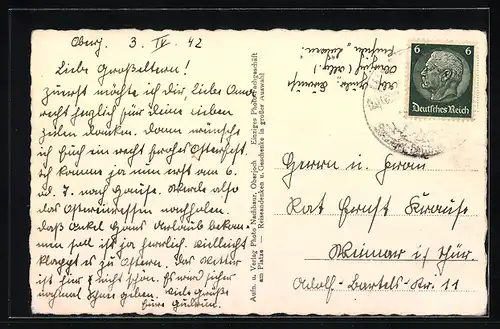 Oberj. 3. IV. 42
Liebe Großeltern!
Zuerst möchte ich dir, liebe Oma
recht herzlich für deine lieben
Zeilen danken. Dann wünsche
ich Euch ein recht frohes Osterfest.
Ich komme ja nun erst am 6.
od. 7. nach Hause. Werde also
das Ostereiessen nachholen.
Daß Onkel Hans Urlaub bekom-
men soll ist ja herrlich. Vielleicht
klappt es zu Ostern. Das Wetter
ist hier nicht schön. Es wird sicher
nochmal Schnee geben. Viele Grüße
Eure Gudrun.
Autn. u. Verlag Photo Nachbaur, Oberjoch — Einziges Photo-Fachgeschäft
am Platze — Reiseandenken u. Geschenke in großer Auswahl
Abs.
Oberjoch (Allg.)
6 6
Deutsches Reich
Herrn u. Frau
Rat Ernst Krause
Weimar i/ Thür.
Adolf-Bartels-Str. 11